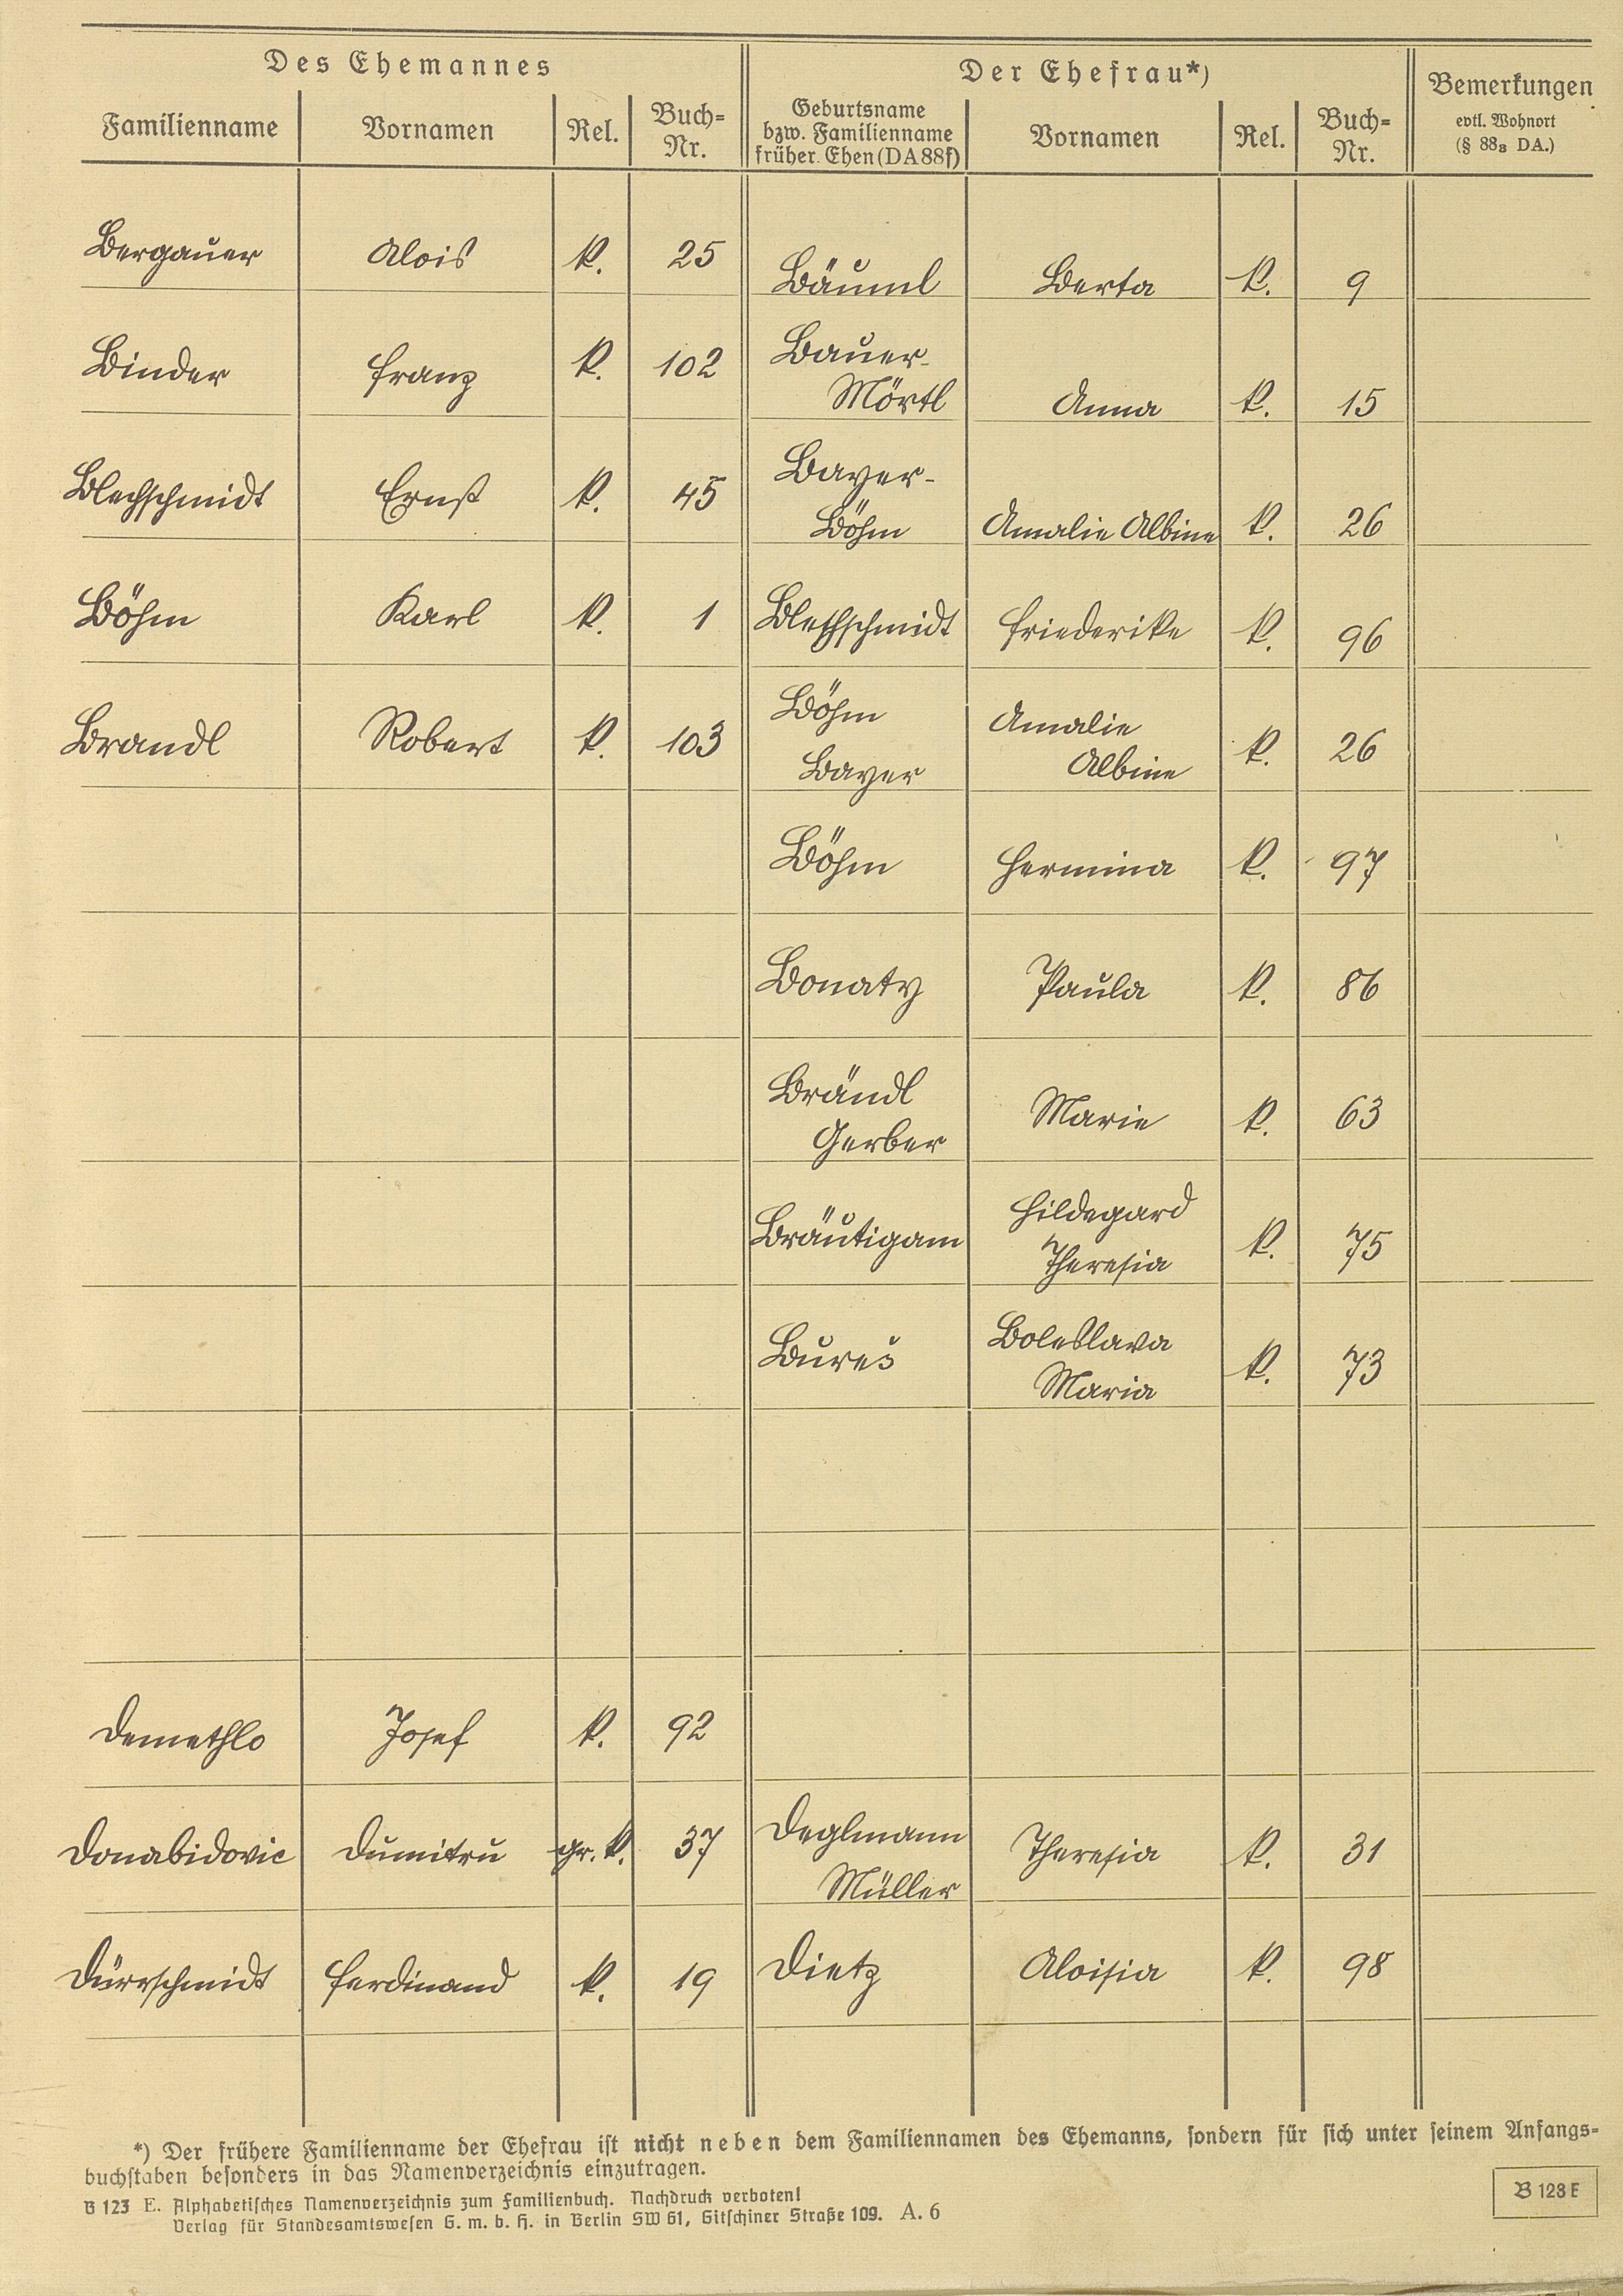 Des Ehemannes Der Ehefrau*) Bemerkungen
evtl. Wohnort
(§ 88₃ DA.)
Familienname Vornamen Rel. Buch=
Nr. Geburtsname
bzw. Familienname
früher. Ehen (DA 88f) Vornamen Rel. Buch=
Nr.
Bergauer Alois k. 25 Bäuml Berta k. 9
Binder Franz k. 102 Bauer-
Mörtl Anna k. 15
Blechschmidt Ernst k. 45 Bayer-
Böhm Amalie Albine k. 26
Böhm Karl k. 1 Blechschmidt Friederike k. 96
Brandl Robert k. 103 Böhm Amalie
Bayer Albine k. 26
Böhm Hermina k. 97
Bonaty Paula k. 86
Brändl
Gerber Marie k. 63
Bräutigam Hildegard
Theresia k. 75
Bureš Boleslava
Maria k. 73
Demethlo Josef k. 92
Donabidovic Dumitru gr. k. 37 Deglmann
Müller Theresia k. 31
Dürrschmidt Ferdinand k. 19 Dietz Aloisia k. 98
*) Der frühere Familienname der Ehefrau ist nicht neben dem Familiennamen des Ehemanns, sondern für sich unter seinem Anfangs=
buchstaben besonders in das Namenverzeichnis einzutragen.
B 123 E. Alphabetisches Namenverzeichnis zum Familienbuch. Nachdruck verboten!
Verlag für Standesamtswesen G. m. b. H. in Berlin SW 61, Gitschiner Straße 109. A. 6
B 123 E